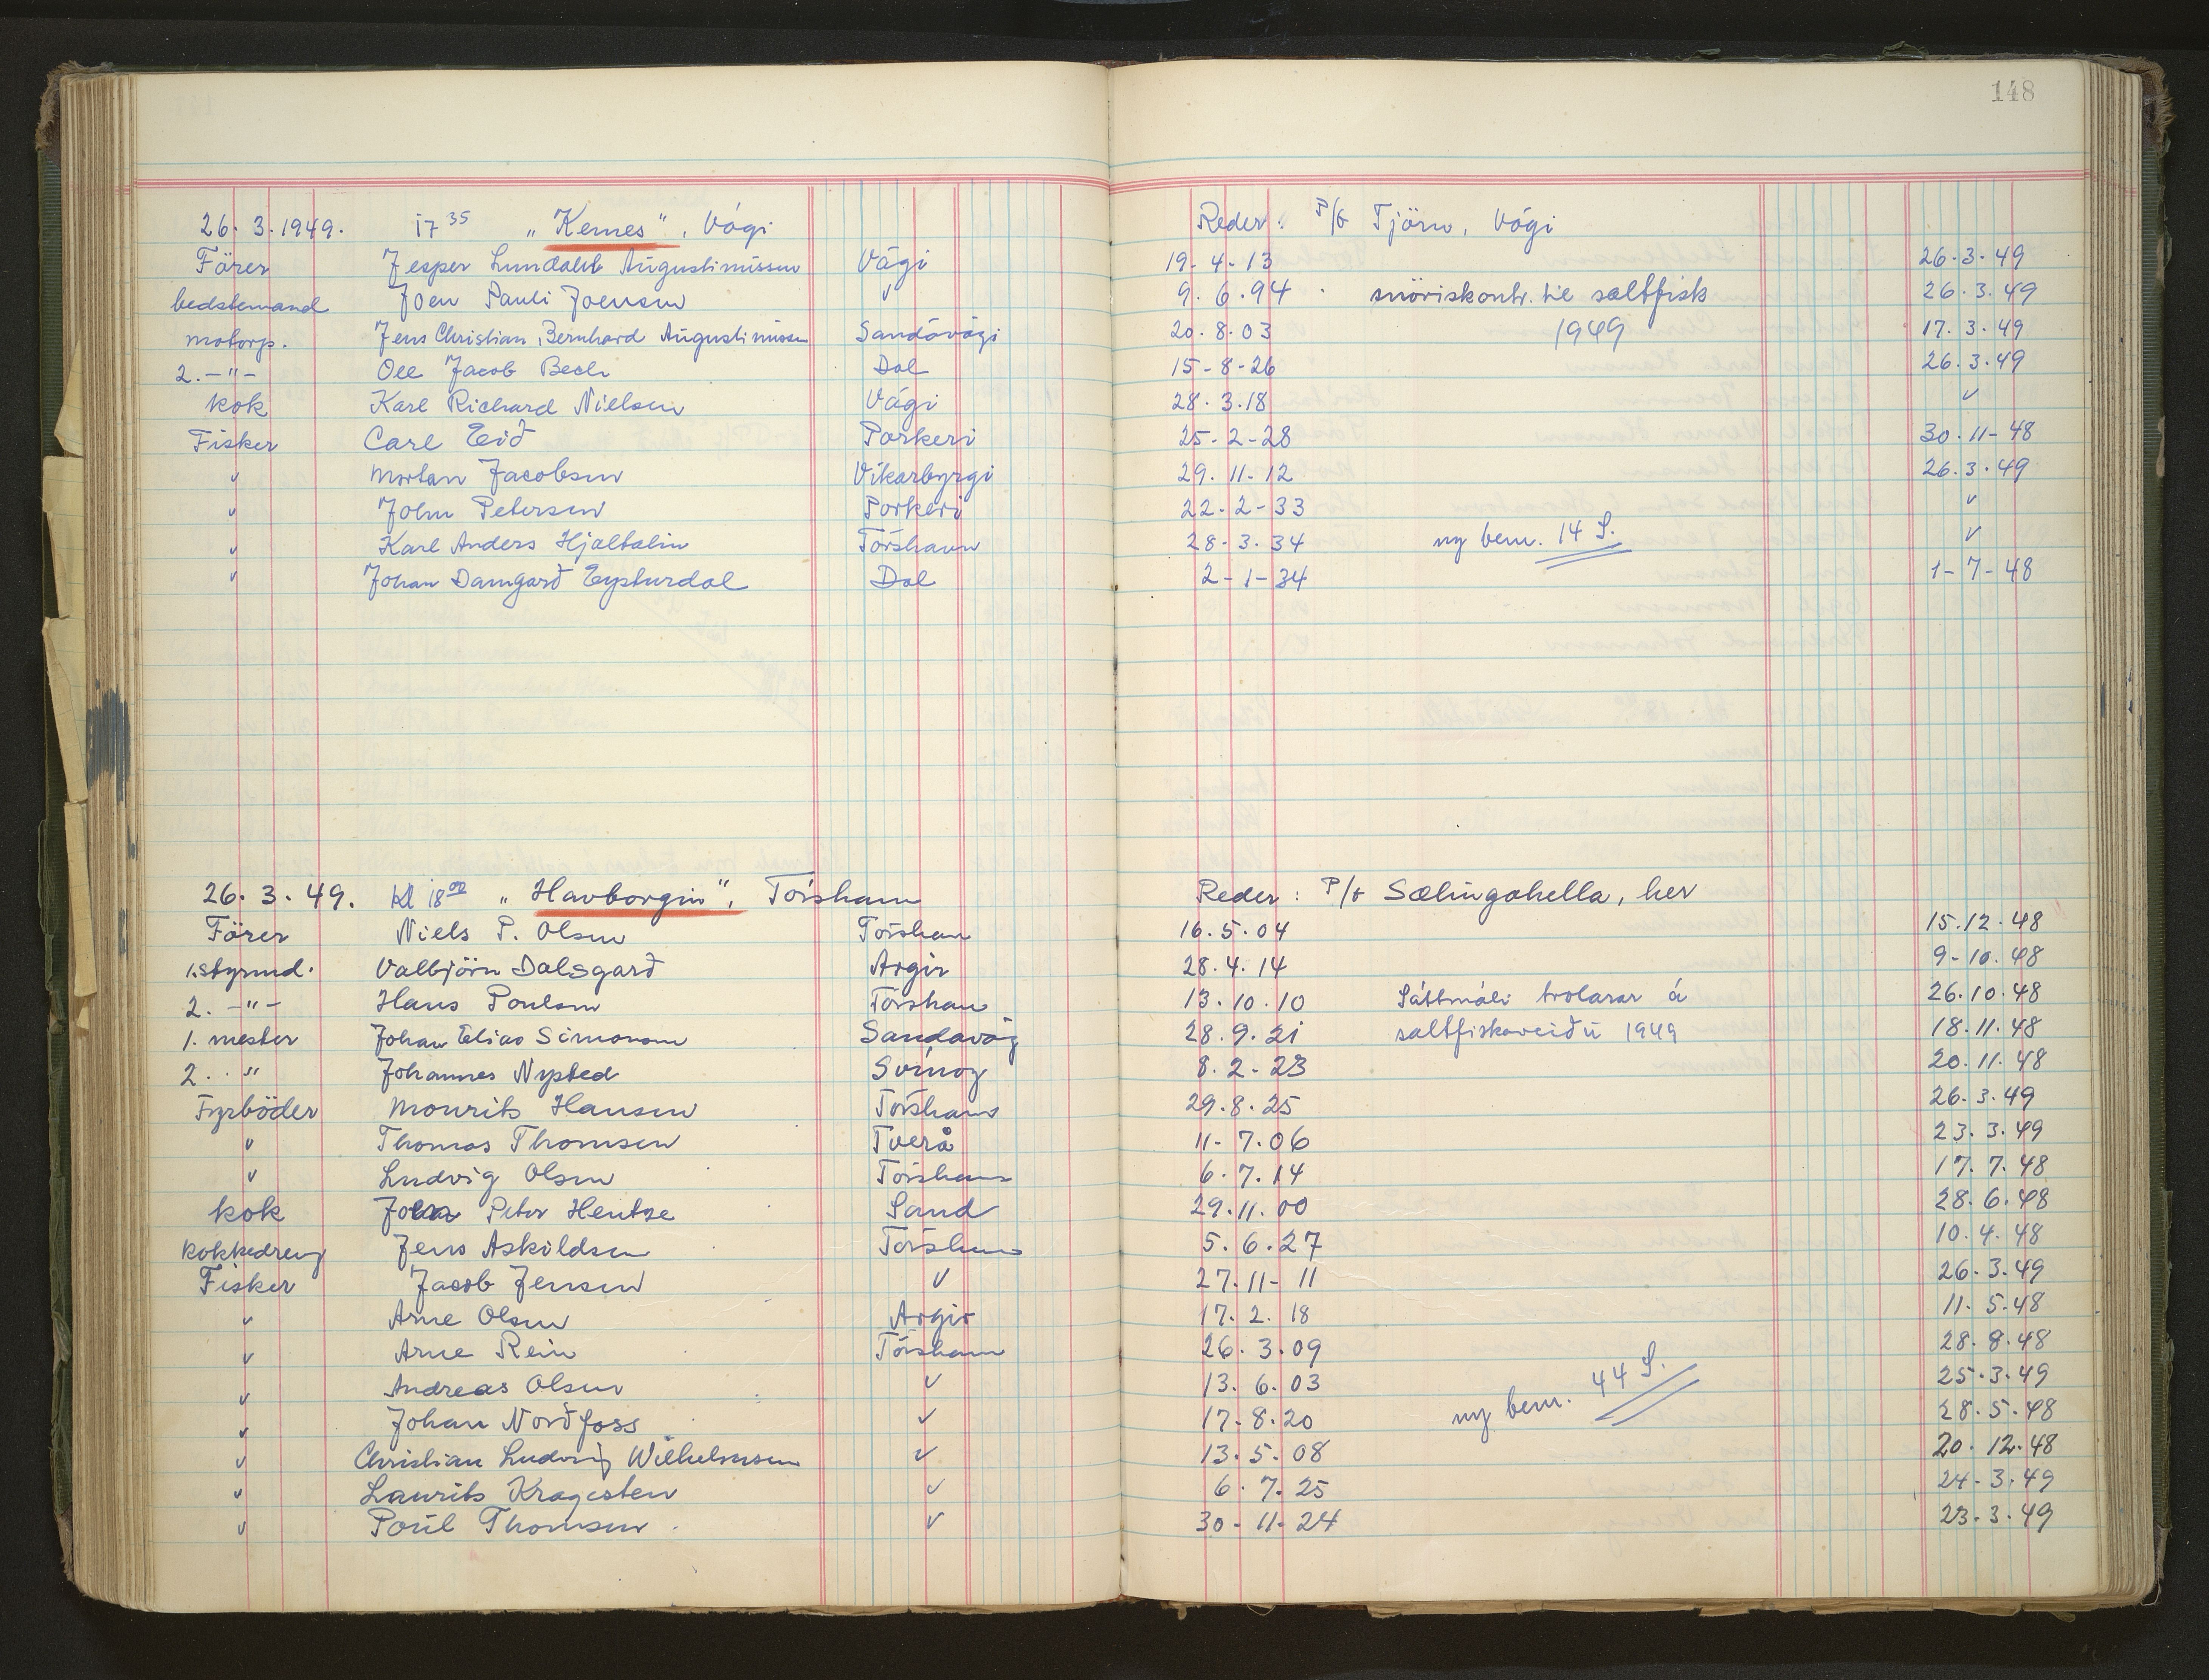 148
26. 3. 1949. 17 35 „Kemes", Vági Reder: P/f Tjörn, Vági
Förer Jesper Lundald Augustinussen Vági 19-4-13 26.3.49
bedstemand Joen Pauli Joensen v 9.6.94 snöriskontr. til saltfisk 26.3.49
motorp. Jens Christian Bernhard Augustinussen Sandávági 20.8.03 1949 17.3.49
2. -"- Ole Jacob Bech Dal 15-8-26 26.3.49
kok Karl Richard Nielsen Vági 28.3.18 v
Fisker Carl Eið Porkeri 25-2-28 30.11-48
v Mortan Jacobsen Víkarbyrgi 29.11-12 26.3.49
v John Petersen Porkeri 22-2-33 v
v Karl Anders Hjaltalin Tórshavn 28-3.34 ny bem. 14 S. v
v Johan Damgarð Eysturdal Dal 2-1-34 1-7-48
26.3.49. Kl 18 00 „Havborgin", Tórshavn Reder: P/f Sælingahella, her
Förer Niels P. Olsen Tórshavn 16.5.04 15.12.48
1. styrmd. Valbjörn Dalsgarð Argir 28.4.14 9-10.48
2. -"- Hans Poulsen Tórshavn 13.10.10 Sáttmáli trolarar á 26.10.48
1. mester Johan Elias Simonsen Sandavág 28.9.21 saltfiskaveiðu 1949 18.11.48
2. " Johannes Nysted Svínoy 8.2-23 20.11.48
Fyrböder Mourits Hansen Tórshavn 29.8.25 26.3.49
v Thomas Thomsen Tverå 11-7.06 23.3.49
v Ludvig Olsen Tórshavn 6.7.14 17.7.48
kok Peter Hentze Sand 29.11.00 28.6.48
kokkedreng Jens Askildsen Tórshavn 5.6.27 10.4.48
Fisker Jacob Jensen v 27.11-11 26.3.49
v Arne Olsen Argir 17.2.18 11-5.48
v Arne Rein Tórshavn 26.3.09 28.8.48
v Andreas Olsen v 13.6.03 ny bem. 44 S. 25.3.49
v Johan Norðfoss v 17-8.20 28.5.48
v Christian Ludvig Wilhelmsen v 13.5.08 20.12.48
v Laurits Kragesten v 6.7.25 24.3.49
v Poul Thomsen v 30-11-24 23.3.49